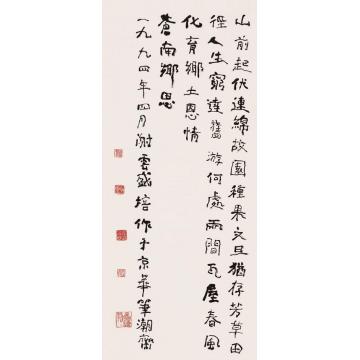 山前起伏連綿故園種果文旦猶存芳草田
徑人生窮達舊游何處兩間瓦屋春風
化育鄉土恩情
蒼南鄉思
一九九四年四月謝雲盛培作于京華筆潮齋